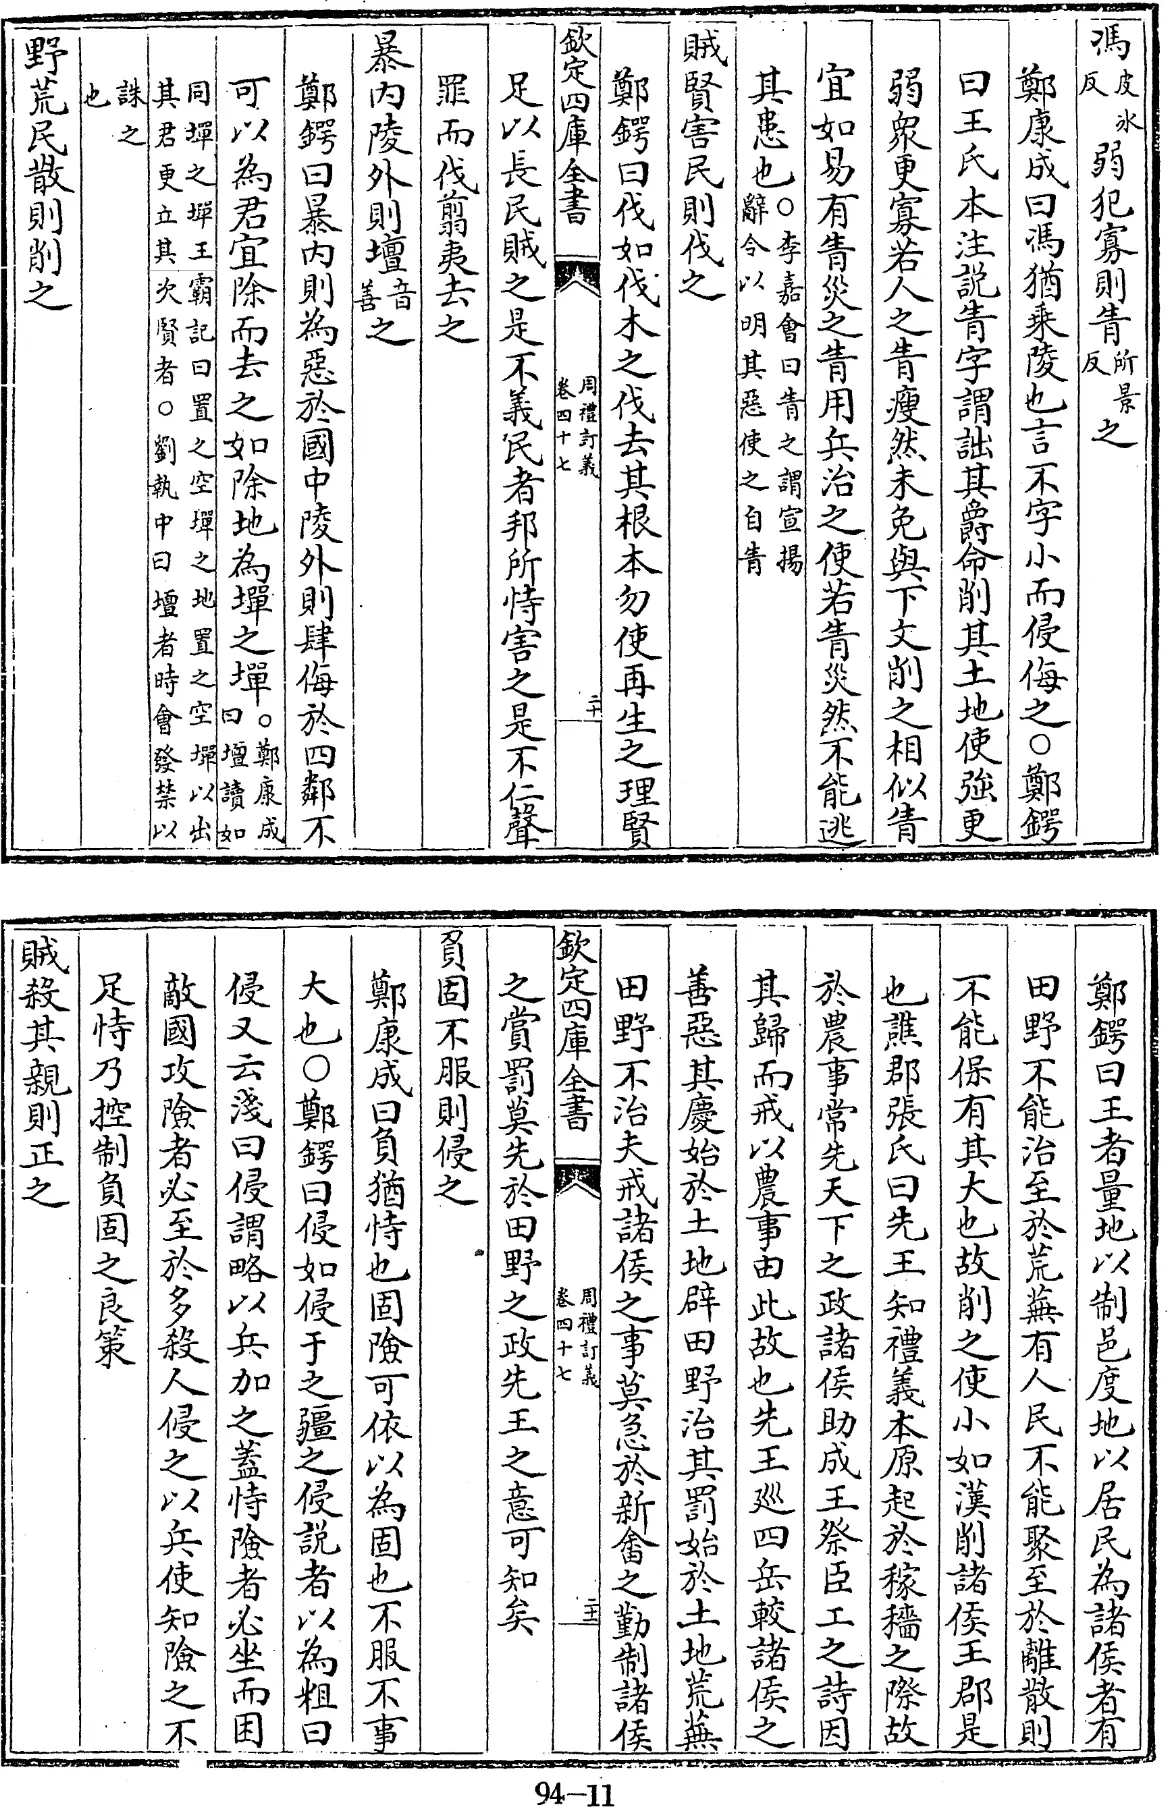 馮皮氷反弱犯寡則眚所景反之
鄭康成曰馮猶乘陵也言不字小而侵侮之○鄭鍔
曰王氏本注説眚字謂詘其爵命削其土地使強更
弱衆更寡若人之眚瘦然未免與下文削之相似眚
宜如易有眚災之眚用兵治之使若眚災然不能逃
其患也○李嘉會曰眚之謂宣揚辭令以明其惡使之自眚
賊賢害民則伐之
鄭鍔曰伐如伐木之伐去其根本勿使再生之理賢
欽定四庫全書 周禮訂義卷四十七 二十
足以長民賊之是不義民者邦所恃害之是不仁聲
罪而伐翦夷去之
暴内陵外則壇音善之
鄭鍔曰暴内則為惡於國中陵外則肆侮於四鄰不
可以為君宜除而去之如除地為墠之墠○鄭康成曰壇讀如
同墠之墠王霸記曰置之空墠之地置之空墠以出其君更立其次賢者○劉執中曰壇者時會發禁以
誅之也
野荒民散則削之
鄭鍔曰王者量地以制邑度地以居民為諸侯者有
田野不能治至於荒蕪有人民不能聚至於離散則
不能保有其大也故削之使小如漢削諸侯王郡是
也譙郡張氏曰先王知禮義本原起於稼穡之際故
於農事常先天下之政諸侯助成王祭臣工之詩因
其歸而戒以農事由此故也先王廵四岳較諸侯之
善惡其慶始於土地辟田野治其罰始於土地荒蕪
田野不治夫戒諸侯之事莫急於新畬之勤制諸侯
欽定四庫全書 周禮訂義卷四十七 二十一
之賞罰莫先於田野之政先王之意可知矣
負固不服則侵之
鄭康成曰負猶恃也固險可依以為固也不服不事
大也○鄭鍔曰侵如侵于之疆之侵説者以為粗曰
侵又云淺曰侵謂略以兵加之蓋恃險者必坐而困
敵國攻險者必至於多殺人侵之以兵使知險之不
足恃乃控制負固之良策
賊殺其親則正之
94-11